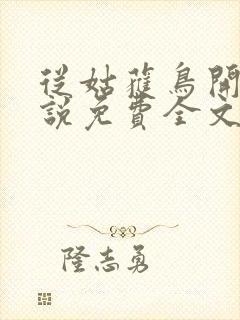 從姑蘿鳥開
說免費全文
隆志勇